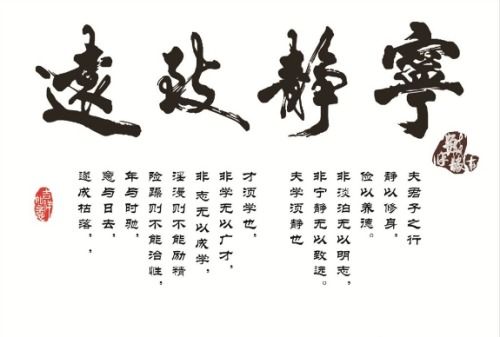 寧靜致遠
夫君子之行
静以修身，
俭以养德。
非淡泊无以明志，
非宁静无以致远。
夫学须静也
才须学也，
非学无以广才，
非志无以成学，
淫漫则不能励精
险躁则不能治性，
年与时驰，
意与日去，
遂成枯落，，